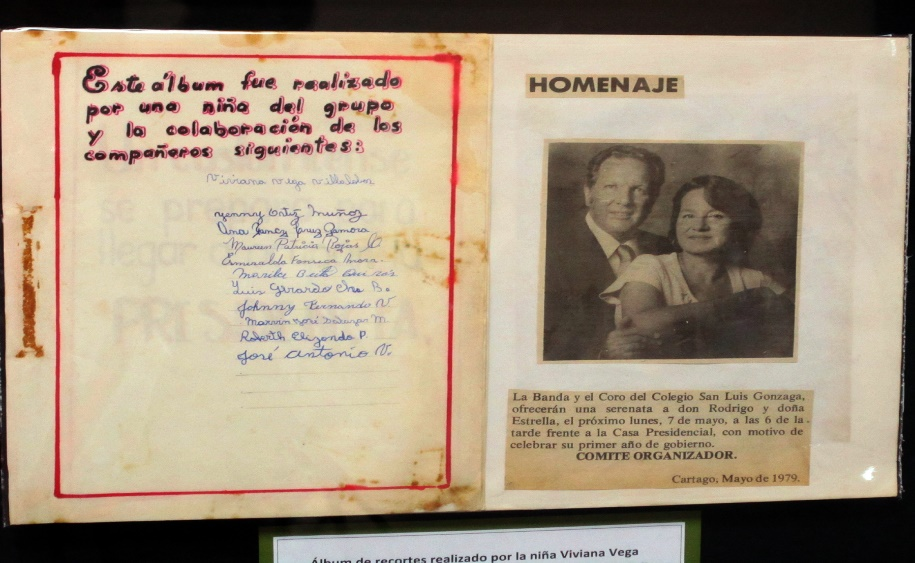 Este álbum fue realizado
por una niña del grupo
y la colaboración de los
compañeros siguientes:
Viviana Vega Villalobos
Yenny Ortiz Muñoz
Cruz Zamora
Maureen Patricia Rojas
Esmeralda Fonseca
Luis Gerardo B.
Johnny Fernando V.
Marvin José Salazar M.
Roberth Elizondo P.
José Antonio V.
HOMENAJE
La Banda y el Coro del Colegio San Luis Gonzaga,
ofrecerán una serenata a don Rodrigo y doña
Estrella, el próximo lunes, 7 de mayo, a las 6 de la
tarde frente a la Casa Presidencial, con motivo de
celebrar su primer año de gobierno.
COMITE ORGANIZADOR.
Cartago, Mayo de 1979.
Álbum de recortes realizado por la niña Viviana Vega